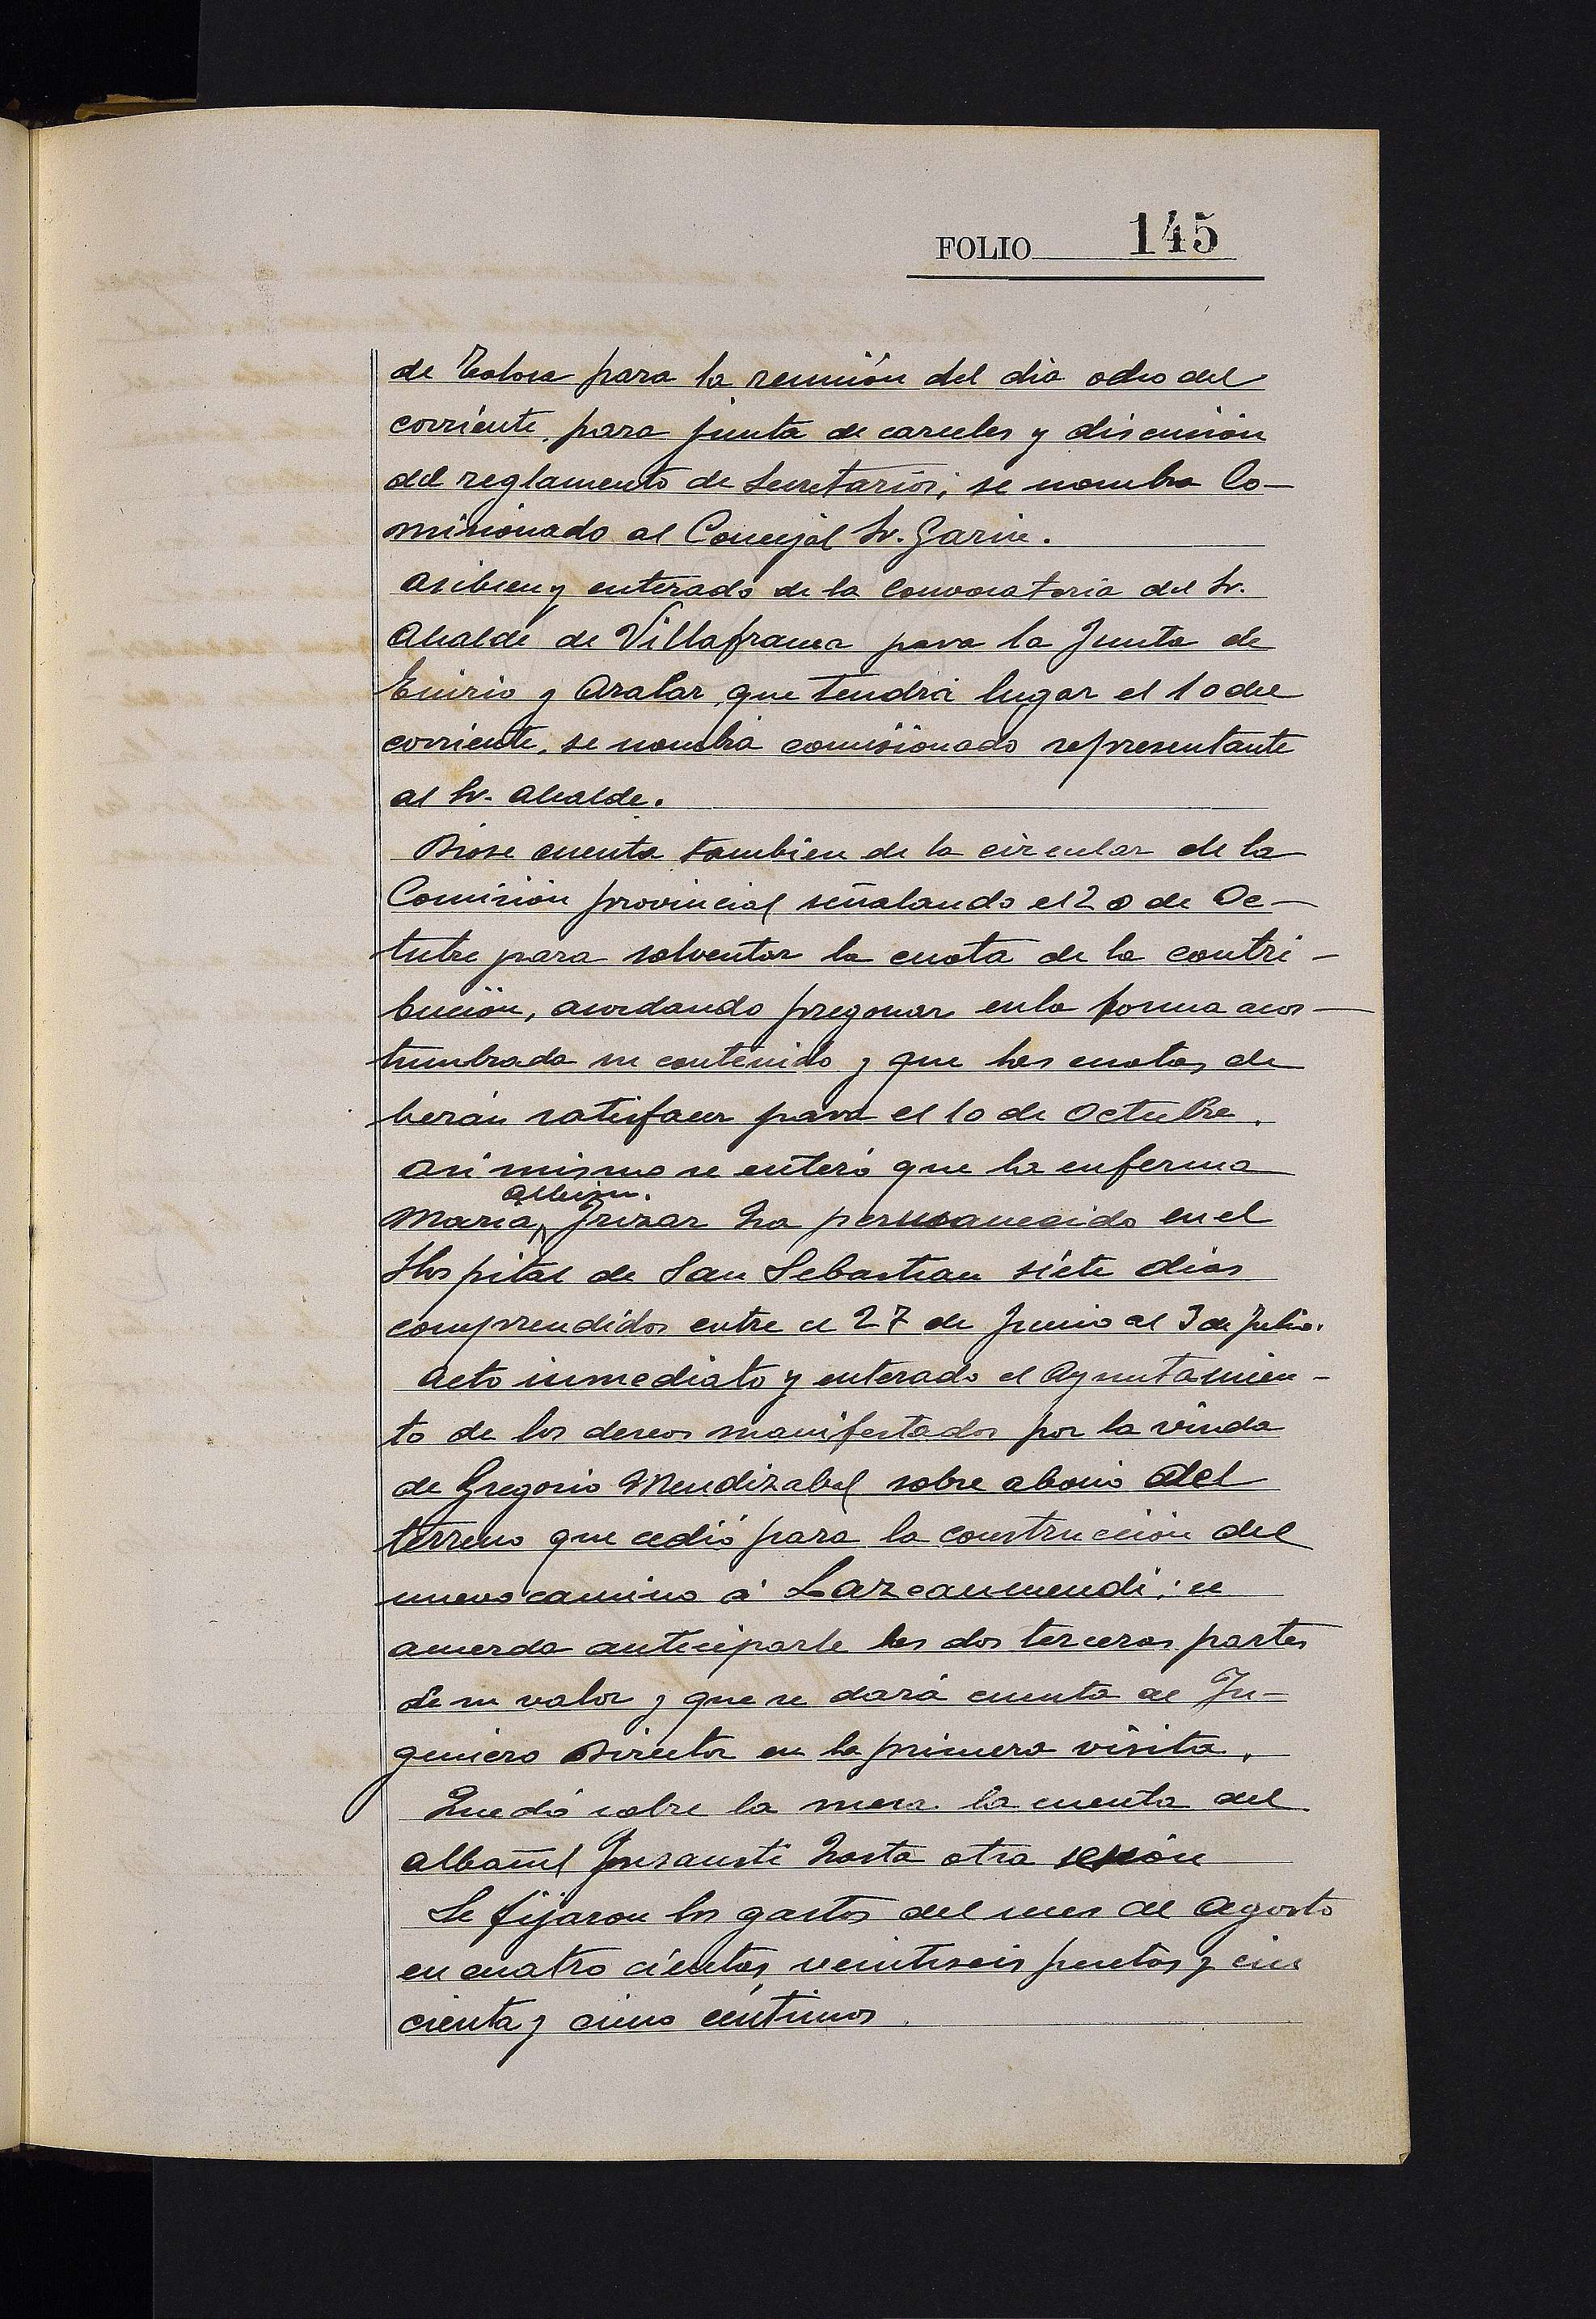 FOLIO 145
de Tolosa para la reunión del dia ocho del
corriente, para junta de carceles y discusión
del reglamento de Secretarios; se nombra Co-
misionado al Concejal Sr. Garin.
Asibien y enterado de la Convocatoria del Sr.
Alcalde de Villafranca para la Junta de
Enirio y Aralar, que tendrá lugar el 10 del
corriente, se nombra comisionado representante
al Sr. Alcalde.
Diose cuenta tambien de la circular de la
Comisión provincial señalando el 20 de Oc-
tubre para solventar la cuota de la contri-
bución, acordando pregonar en la forma acos-
tumbrada su contenido y que las cuotas de
berán satisfacer para el 10 de Octubre.
Asi mismo se enteró que la enferma
María Irizar ha permanecido en el
Hospital de San Sebastian siete dias
comprendidos entre el 27 de Junio al 3 de Julio.
Acto inmediato y enterado el Ayuntamien-
to de los deseos manifestados por la viuda
de Gregorio Mendizabal sobre abono del
terreno que cedió para la construcción del
nuevo camino á Lazcaumendi: se
acuerda anticiparle las dos terceras partes
de su valor y que se dará cuenta al In-
geniero Director en la primera visita.
Quedó sobre la mesa la cuenta del
albañil Insausti hasta otra sesión
Se fijaron los gastos del mes de Agosto
en cuatro cientas veintiseis pesetas y cin
cuenta y cinco céntimos.